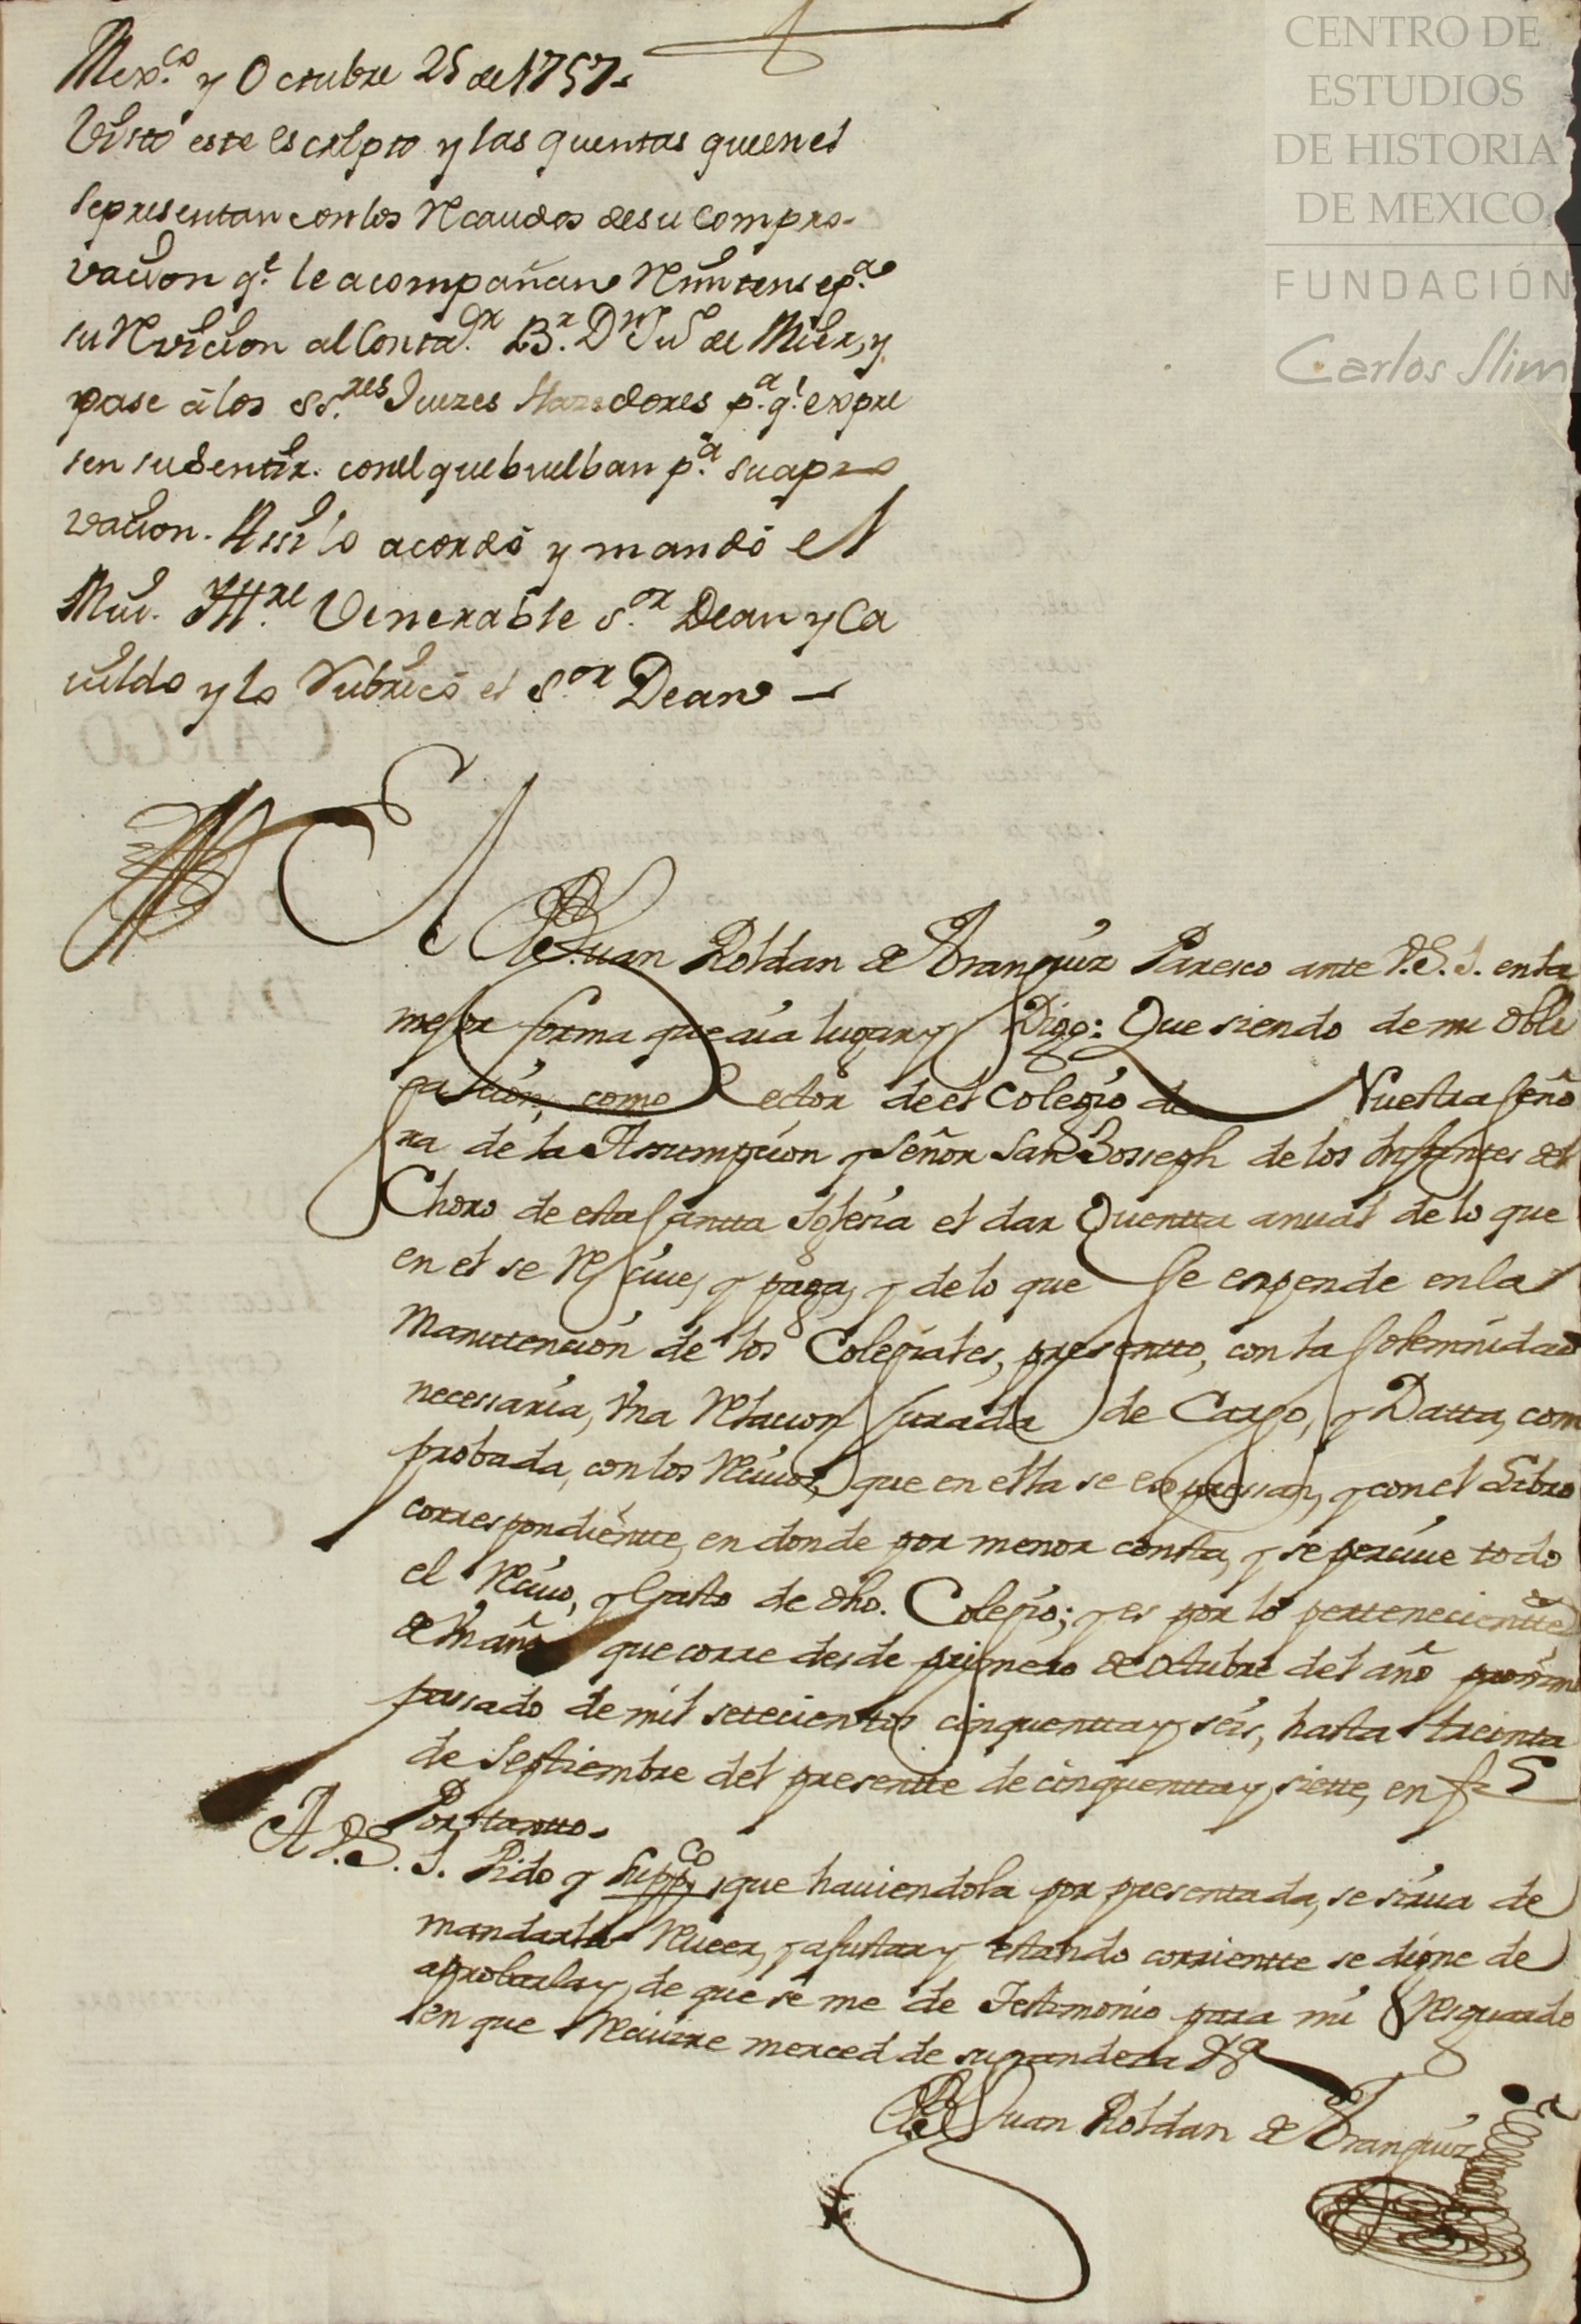 Mex.co y Octubre 25 de 1757.
Visto este escripto y las quentas que en el
se presentan con los Recaudos de su compro-
vacion q.e le acompañan Remitense p.a
su Revicion al Conta.or B.r D.n Ju.o de Mier, y
pase â los SS.res Juezes Hazedores p.a q.e expre
sen su sentir. con el que buelban p.a su apro
vacion. Assi lo acordò y mandò el
Mui. Ill.re Venerable S.or Dean y Ca
vildo y lo rubricò el S.or Dean
El Br. Juan Roldan de Aranguiz Paresco ante V.S.I. en la
mejor forma que aia lugar y Digo: Que siendo de mi obli
gacion, como Rector de el Colegio de Nuestra Seño
ra de la Assumpcion y Señor San Jossegh de los Infantes del
Choro de esta Santta Iglesia el dar Quentta anual de lo que
en el se Resciue, y paga, y de lo que se expende en la
Manutencion de los Colegiales, presentto, con la solemnidad
necessaria, vna Relacion Jurada de Cargo, y Datta, com
probada, con los Reciuos, que en ella se expressan, y con el Libro
correspondientte, en donde por menor consta, y se perciue todo
el Reciuo, y Gasto de dho. Colegio; y es por lo pertenecientte
à vn año que corre desde primero de Octubre del año proxim
passado de mil setecientos cinquentta y seis, hasta treinta
de Septiembre del presentte de cinquentta y siette, en f.s 5
Por tantto.
A V.S.I. Pido y supp.co que hauiendola por presentada, se sirua de
mandarla Rueer, y ajustar y estando corrientte se digne de
aprobarla y de que se me de Testimonio para mi Resguardo
en que Reciuire merced de su grandeza &a
Br. Juan Roldan de Aranguiz
CENTRO DE
ESTUDIOS
DE HISTORIA
DE MEXICO
FUNDACIÓN
Carlos Slim